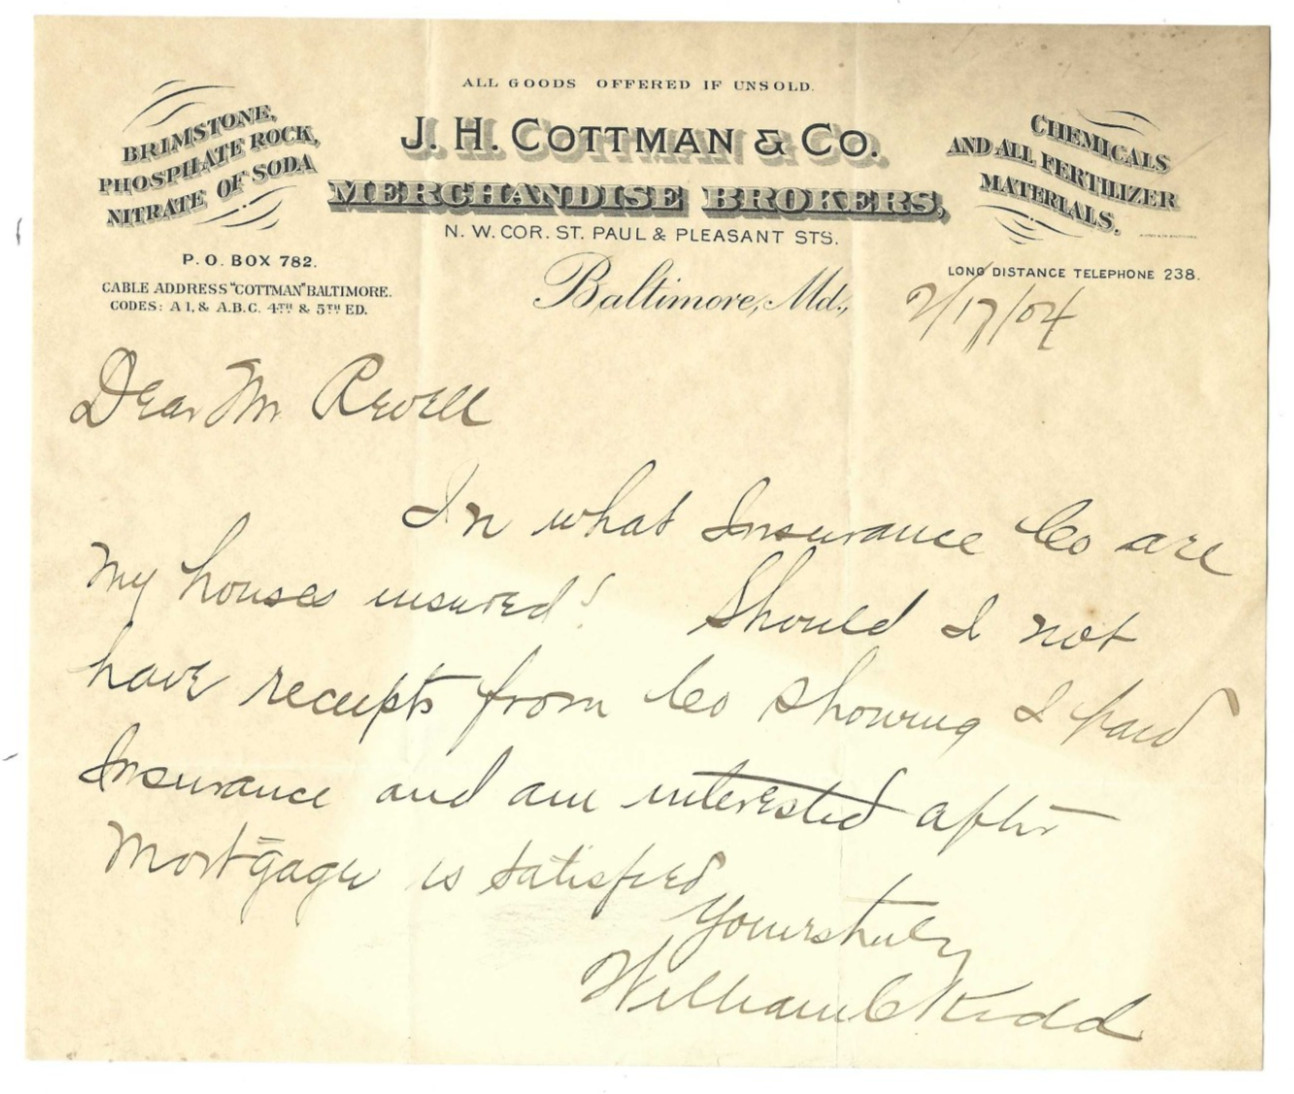 ALL GOODS OFFERED IF UNSOLD.
BRIMSTONE,
PHOSPHATE ROCK,
NITRATE OF SODA
J. H. COTTMAN & CO.
MERCHANDISE BROKERS,
N. W. COR. ST. PAUL & PLEASANT STS.
CHEMICALS
AND ALL FERTILIZER
MATERIALS.
P. O. BOX 782.
CABLE ADDRESS "COTTMAN" BALTIMORE.
CODES: A 1, & A.B.C. 4TH & 5TH ED.
LONG DISTANCE TELEPHONE 238.
Baltimore, Md., 2/17/04
Dear Mr Revell
In what Insurance Co are
my houses insured? Should I not
have receipts from Co showing I paid
Insurance and am interested after
Mortgage is satisfied
Yours truly
William C Kidd